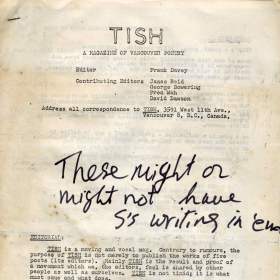 TISH
A MAGAZINE OF VANCOUVER POETRY
Editor Frank Davey
Contributing Editors James Reid
George Bowering
Fred Wah
David Dawson
Address all correspondence to TISH, 3591 West 11th Ave.,
Vancouver 8, B.C., Canada.
These might or
might not have
S's writing in 'em
EDITORIAL:
TISH is a moving and vocal mag. Contrary to rumours, the
purpose of TISH is not merely to publish the works of five
poets (its editors). Mainly TISH is the result and proof of
a movement which we, the editors, feel is shared by other
people as well as ourselves. TISH is not timid; it is where
must come and what does